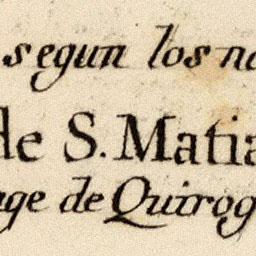 segun los
de S. Matia
age de Quirog